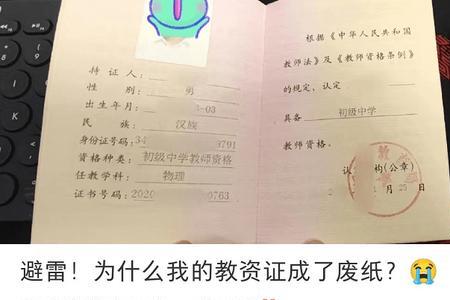 持证人：
性别：男
出生年月：-03
民族：汉族
身份证号码：34 3791
资格种类：初级中学教师资格
任教学科：物理
证书号码：2020 0763
根据《中华人民共和国
教师法》及《教师资格条例》
的规定，认定
具备 初级中学
教师资格。
认 构(公章)
1月25日
避雷！为什么我的教资证成了废纸？😭